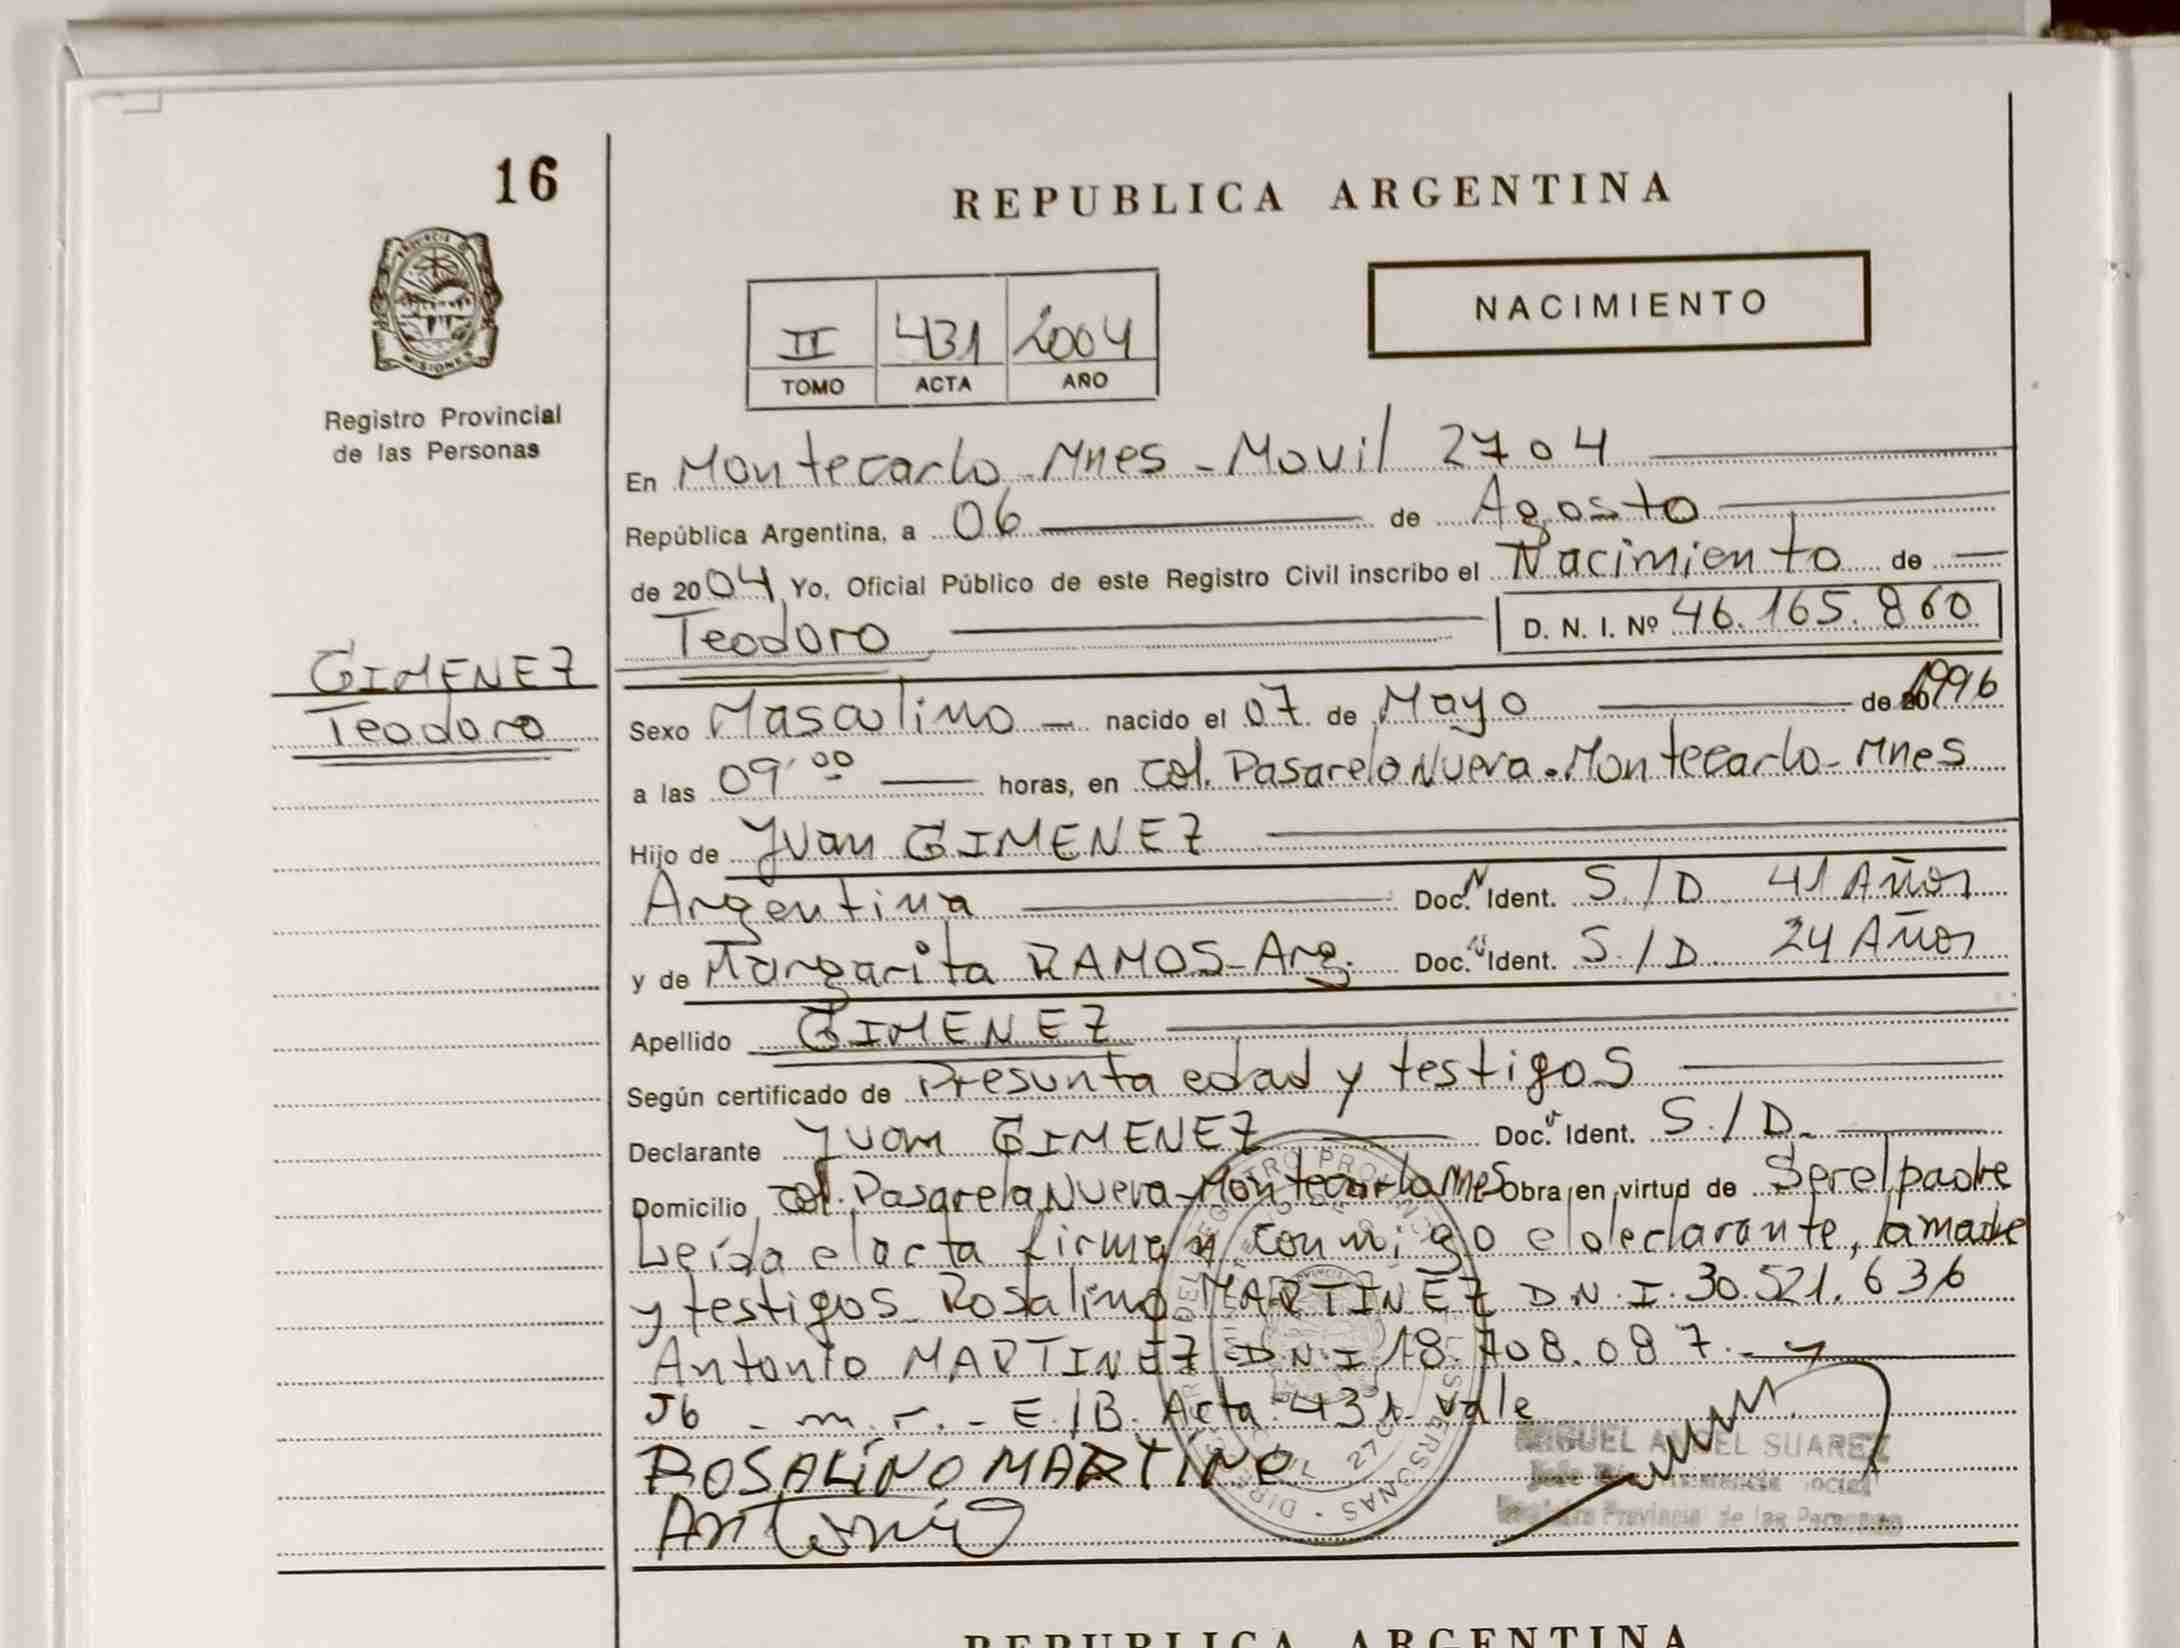 16
REPUBLICA ARGENTINA
NACIMIENTO
II 431 2004
TOMO ACTA AÑO
PROVINCIA DE MISIONES
Registro Provincial
de las Personas
En Montecarlo - Mnes - Movil 2704
República Argentina, a 06 de Agosto
de 2004 Yo, Oficial Público de este Registro Civil inscribo el Nacimiento de
Teodoro D. N. I. Nº 46.165.860
GIMENEZ
Teodoro
Sexo Masculino nacido el 07 de Mayo de 1996
a las 09.00 horas, en Col. Pasarela Nueva - Montecarlo - Mnes
Hijo de Juan GIMENEZ
Argentina Doc. N Ident. S/D 41 Años
y de Margarita RAMOS - Arg. Doc. N Ident. S/D 24 Años
Apellido GIMENEZ
Según certificado de Presunta edad y testigos
Declarante Juan GIMENEZ Doc. Ident. S/D.
Domicilio Col. Pasarela Nueva - Montecarlo Mnes Obra en virtud de Ser el padre
Leída el acta firman conmigo el declarante, la madre
y testigos Rosalino MARTINEZ D.N.I. 30.521.636
Antonio MARTINEZ D.N.I 18.708.087.-
Jb - m.r. - E/B. Acta 431 Vale
ROSALINO MARTINE
Antonio
MIGUEL ANGEL SUAREZ
Registro Provincial de las Personas
REPUBLICA ARGENTINA